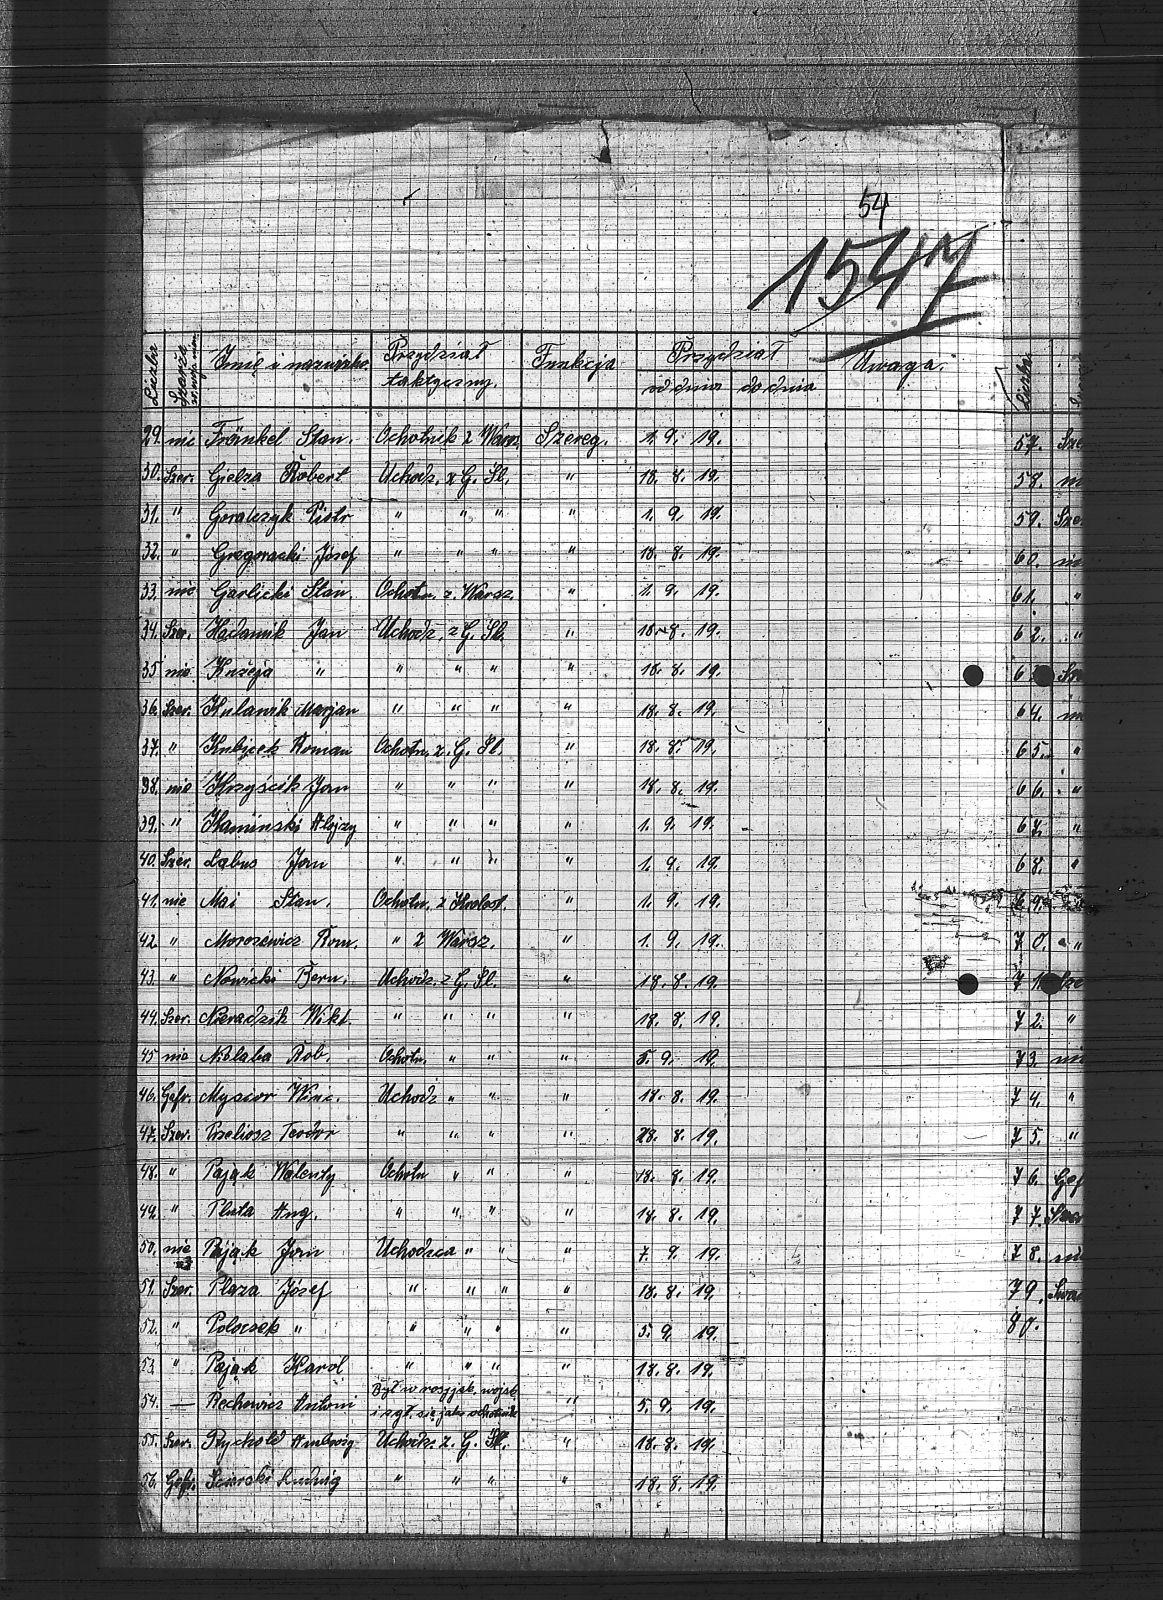 54
1547
Liczba Szarża Imię i nazwisko. Przydział taktyczny. Funkcja Przydział od dnia do dnia Uwaga. Liczba
29. nie Fränkel Stan. Ochotnik z Warsz. Szereg. 1. 9. 19. 57. Sze
30. Szer. Gielza Robert Uchodz. z G. Śl. " 18. 8. 19. 58. ni
31. " Goralczyk Piotr " " " " 1. 9. 19. 59. Sze
32. " Gregoracki Józef " " " " 18. 8. 19. 60. ni
33. nie Garlicki Stan. Ochotn. z Warsz " 1. 9. 19. 61. "
34. Szer. Hadamik Jan Uchodz. z G. Śl. " 18. 8. 19. 62. "
35 nie Knieja " " " " " 18. 8. 19. 6
36. Szer. Kulanik Marjan " " " " 18. 8. 19. 64. ni
37. " Kubicek Roman Ochotn. z. G. Śl. " 18. 8. 19. 65. "
38. nie Krzyścik Jan " " " " 18. 8. 19. 66. "
39. " Kamiński Alojzy " " " " 1. 9. 19. 67. "
40. Szer. Labus Jan " " " " 1. 9. 19. 68. "
41. nie Mai Stan. Ochotn. z " 1. 9. 19. 69.
42. " Morozewicz Rom. " z Warsz. " 1. 9. 19. 70. "
43. " Nowicki Bern. Uchodz. z G. Śl. " 18. 8. 19. 71. Sze
44. Szer. Wikt. " " " " 18. 8. 19. 72. "
45 nie Nolaba Rob. Ochotn. " " " 5. 9. 19. 73. nie
46. Gefr. Mysior Winc. Uchodź " " " 18. 8. 19. 74. "
47. Szer. Teodor " " " " 28. 8. 19. 75. "
48. " Pająk Walenty Ochotn " " " 18. 8. 19. 76. Gef
49. " Pluta Aug. " " " " 14. 8. 19. 77. Szer
50. nie Pająk Jan Uchodzca " " " 7. 9. 19. 78. ni
51. Szer. Plaza Józef " " " " 18. 8. 19. 79.
52. " Poloczek " " " " " 5. 9. 19. 80.
53 " Pająk Karol " " " " 18. 8. 19.
54. — Rechowicz Antoni Był w rosyjsk. wojsk i zgł. się jako ochotnik " 5. 9. 19.
55. Szer. Rychold Ambroży Uchodz. z. G. Śl. " 18. 8. 19.
56. Gefr. Ludwig " " " " 18. 8. 19.